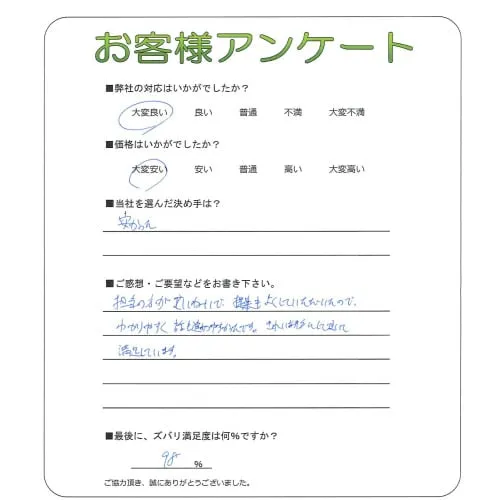 お客様アンケート
■弊社の対応はいかがでしたか？
大変良い 良い 普通 不満 大変不満
■価格はいかがでしたか？
大変安い 安い 普通 高い 大変高い
■当社を選んだ決め手は？
安かった
■ご感想・ご要望などをお書き下さい。
担当の方がていねいで、提案もよくしていただいたので、
わかりやすく話も進めやすかったです。
満足しています。
■最後に、ズバリ満足度は何％ですか？
98 %
ご協力頂き、誠にありがとうございました。